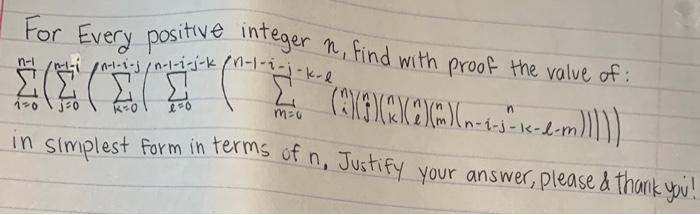 For Every positive integer n, find with proof the value of:
n-1 n-1-i n-1-i-j n-1-i-j-k n-1-i-j-k-l
Σ (Σ (Σ (Σ (Σ (n i)(n j)(n k)(n l)(n m)(n n-i-j-k-l-m)))))
i=0 j=0 k=0 l=0 m=0
in simplest form in terms of n, Justify your answer, please & thank you!